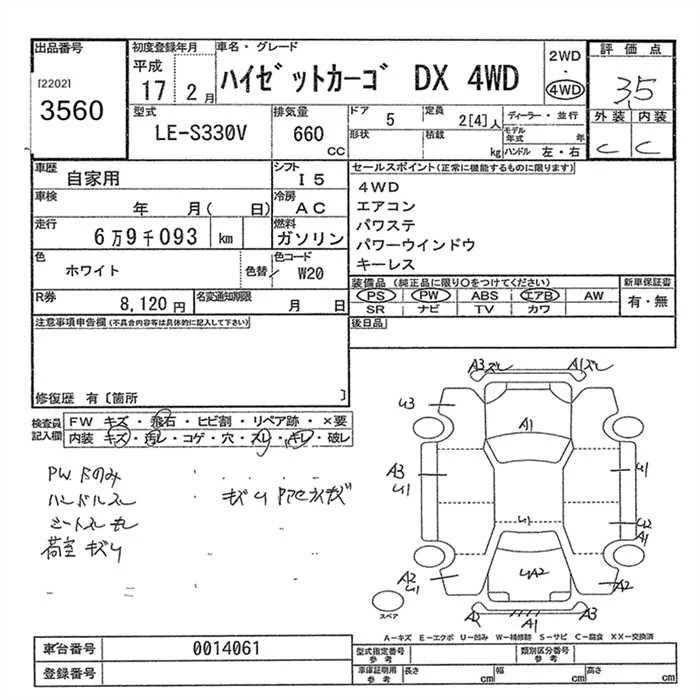 出品番号
[2202]
3560
初度登録年月
平成
17 2月
車名・グレード
ハイゼットカーゴ DX 4WD
2WD
・
4WD
評価点
3.5
外装 内装
C C
型式
LE-S330V
排気量
660
CC
ドア
5
定員
2[4]人
形状
積載
kg
ディーラー・並行
モデル年式 年
ハンドル 左・右
車歴
自家用
シフト
I5
車検
年 月( 日)
冷房
AC
走行
6万9千093 km
燃料
ガソリン
色
ホワイト
色替
色コード
W20
R券
8,120円
名変通知期限
月 日
セールスポイント(正常に機能するものに限ります)
4WD
エアコン
パワステ
パワーウインドウ
キーレス
装備品 (純正品に限り○をつけてください)
PS PW ABS エアB AW
SR ナビ TV カワ
新車保証書
有・無
後日品
注意事項申告欄(不具合内容等は具体的に記入して下さい)
修復歴 有〔箇所 〕
検査員記入欄
FW キズ・飛石・ヒビ割・リペア跡・×要
内装 キズ・汚レ・コゲ・穴・スレ・キレ・破レ
PW Fのみ
ハンドルスレ
荷室 キズU
A3 A1
U3
A1
A3
U1
U1
U2
A1
U1
UA2
A2
U1
A2
A2
A1
A3
スペア
A-キズ E-エクボ U-凹み W-補修跡 S-サビ C-腐食 XX-交換済
車台番号
0014061
登録番号
型式指定番号
参考
類別区分番号
参考
車庫証明用
参考
長さ cm
幅 cm
高さ cm